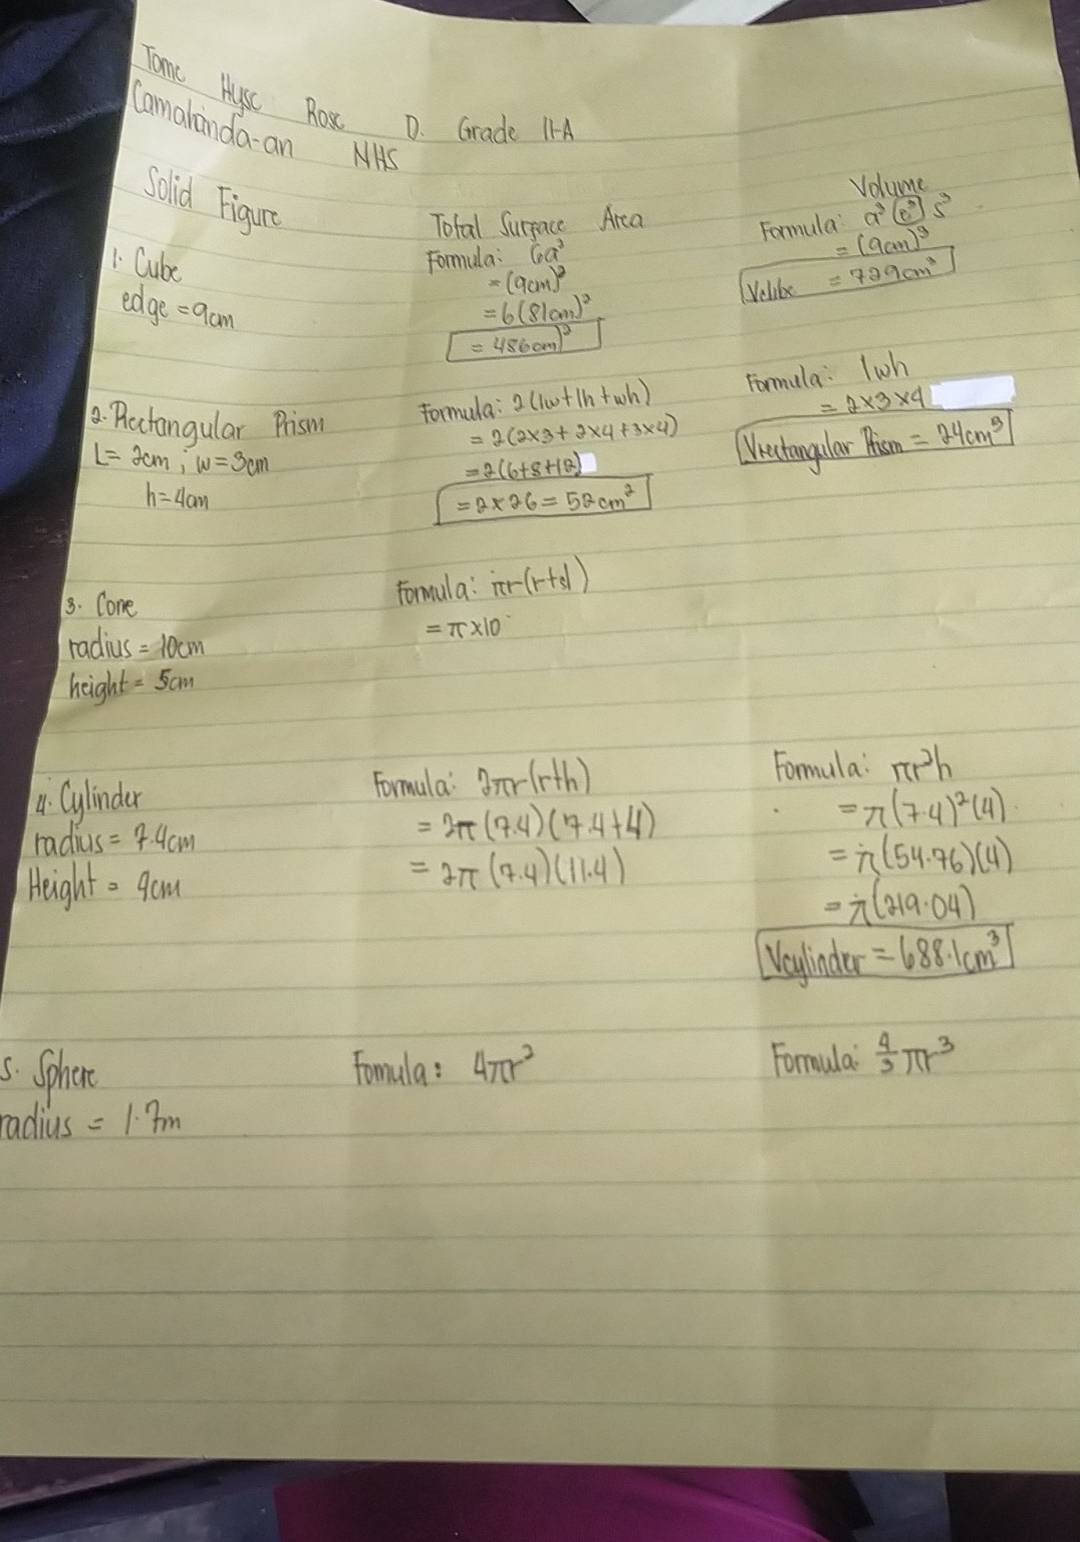 Tome Hysc Rose D. Grade 11-A
Camahinda-an NHS
Solid Figure
Total Surface Area
Volume
1. Cube
edge = 9cm
Formula: 6a²
= (9cm)²
= 6(81cm)²
= 486cm)²
Formula: a³ (e³) s³
= (9cm)³
Vcube = 729cm³
2. Rectangular Prism
L= 2cm ; w=3cm
h=4cm
Formula: 2(lw+lh+wh)
= 2(2x3+2x4+3x4)
= 2(6+8+12)
= 2x26 = 52cm²
Formula: lwh
= 2x3x4
Vrectangular Prism = 24cm³
3. Cone
radius = 10cm
height = 5cm
Formula: πr(r+sl)
= π x10
4. Cylinder
radius = 7.4cm
Height = 4cm
Formula: 2πr(r+h)
= 2π (7.4)(7.4+4)
= 2π (7.4)(11.4)
Formula: πr²h
= π(7.4)²(4)
= π(54.76)(4)
= π(219.04)
Vcylinder = 688.1cm³
5. Sphere
radius = 1.7m
Fomula: 4πr²
Formula: 4/3 πr³